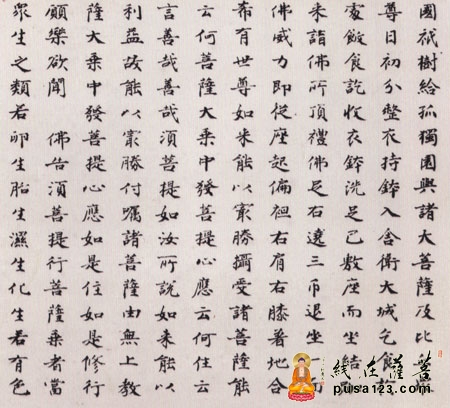 國祇樹給孤獨園與諸大菩薩及比
尊日初分整衣持鉢入舍衛大城乞
處飯食訖收衣鉢洗足已敷座而坐結
來詣佛所頂禮佛足右遶三帀退坐一
佛威力即從座起偏袒右肩右膝著地合
希有世尊如來能以最勝攝受諸菩薩能
云何菩薩大乘中發菩提心應云何住云
言善哉善哉須菩提如汝所說如來能以
利益故能以最勝付囑諸菩薩由無上教
薩大乘中發菩提心應如是住如是修行
願樂欲聞 佛告須菩提行菩薩乘者當
眾生之類若卵生胎生濕生化生若有色
线在萨菩
pusa123.com